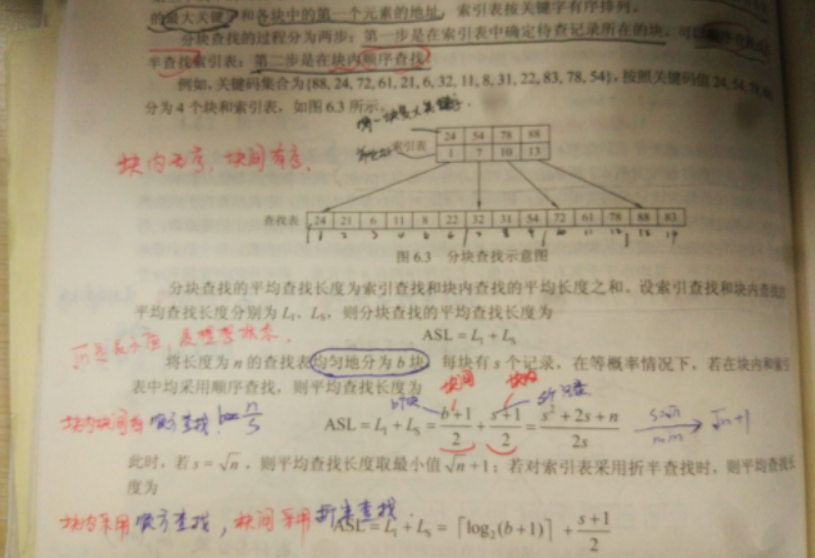 的最大关键字和各块中的第一个元素的地址，索引表按关键字有序排列。
分块查找的过程分为两步：第一步是在索引表中确定待查记录所在的块，可以顺序
半查找索引表；第二步是在块内顺序查找。
例如，关键码集合为{88, 24, 72, 61, 21, 6, 32, 11, 8, 31, 22, 83, 78, 54}，按照关键码值 24, 54, 78,
分为 4 个块和索引表，如图 6.3 所示。
索引表
24 54 78 88
1 7 10 13
块内无序，块间有序.
查找表 24 21 6 11 8 22 32 31 54 72 61 78 88 83
图 6.3 分块查找示意图
分块查找的平均查找长度为索引查找和块内查找的平均长度之和。设索引查找和块内查找的
平均查找长度分别为 L₁、Lₛ，则分块查找的平均查找长度为
ASL = L₁ + Lₛ
将长度为 n 的查找表均匀地分为 b 块，每块有 s 个记录，在等概率情况下，若在块内和索引
表中均采用顺序查找，则平均查找长度为
块间 块内
块内块间都顺序查找. b=n/s
ASL = L₁ + Lₛ = (b+1)/2 + (s+1)/2 = (s²+2s+n)/2s
√n+1
此时，若 s = √n，则平均查找长度取最小值 √n + 1；若对索引表采用折半查找时，则平均查找长
度为
块内采用顺序查找，块间采用折半查找.
ASL = L₁ + Lₛ = ⌈log₂(b+1)⌉ + (s+1)/2